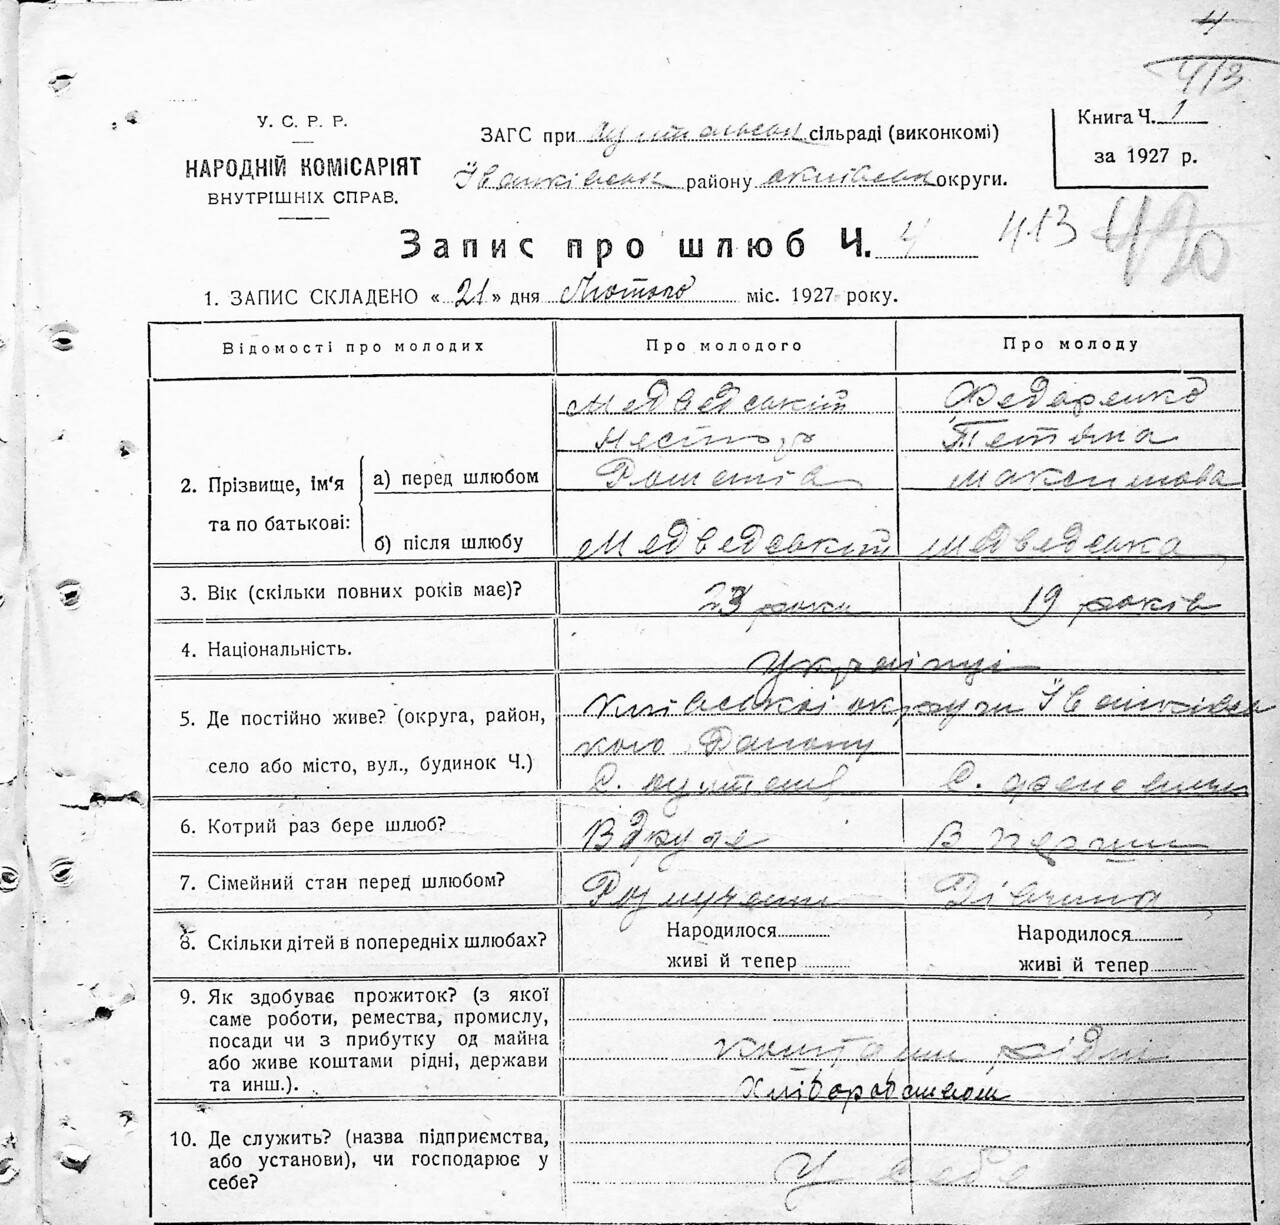 4
413
У. С. Р. Р.
НАРОДНІЙ КОМІСАРІЯТ
ВНУТРІШНІХ СПРАВ.
ЗАГС при сільраді (виконкомі)
Іванківськ району київськ округи.
Книга Ч. 1
за 1927 р.
Запис про шлюб Ч. 4
413
1. ЗАПИС СКЛАДЕНО « 21 » дня Лютого міс. 1927 року.
Відомості про молодих Про молодого Про молоду
2. Прізвище, ім'я та по батькові:
а) перед шлюбом
Медведський Федаренко
Нестор Тетяна
Максимова
б) після шлюбу Медведський Медведська
3. Вік (скільки повних років має)? 23 роки 19 років
4. Національність. Українці
5. Де постійно живе? (округа, район, Київської округи Іванківсь
кого Району
село або місто, вул., будинок Ч.) С. С.
6. Котрий раз бере шлюб? Вдруге В перши
7. Сімейний стан перед шлюбом? Розлучени Дівчина
8. Скільки дітей в попередніх шлюбах? Народилося Народилося
живі й тепер живі й тепер
9. Як здобуває прожиток? (з якої
саме роботи, ремества, промислу,
посади чи з прибутку од майна
або живе коштами рідні, держави коштами рідні
та инш.). Хліборобством
10. Де служить? (назва підприємства,
або установи), чи господарює у У себе
себе?